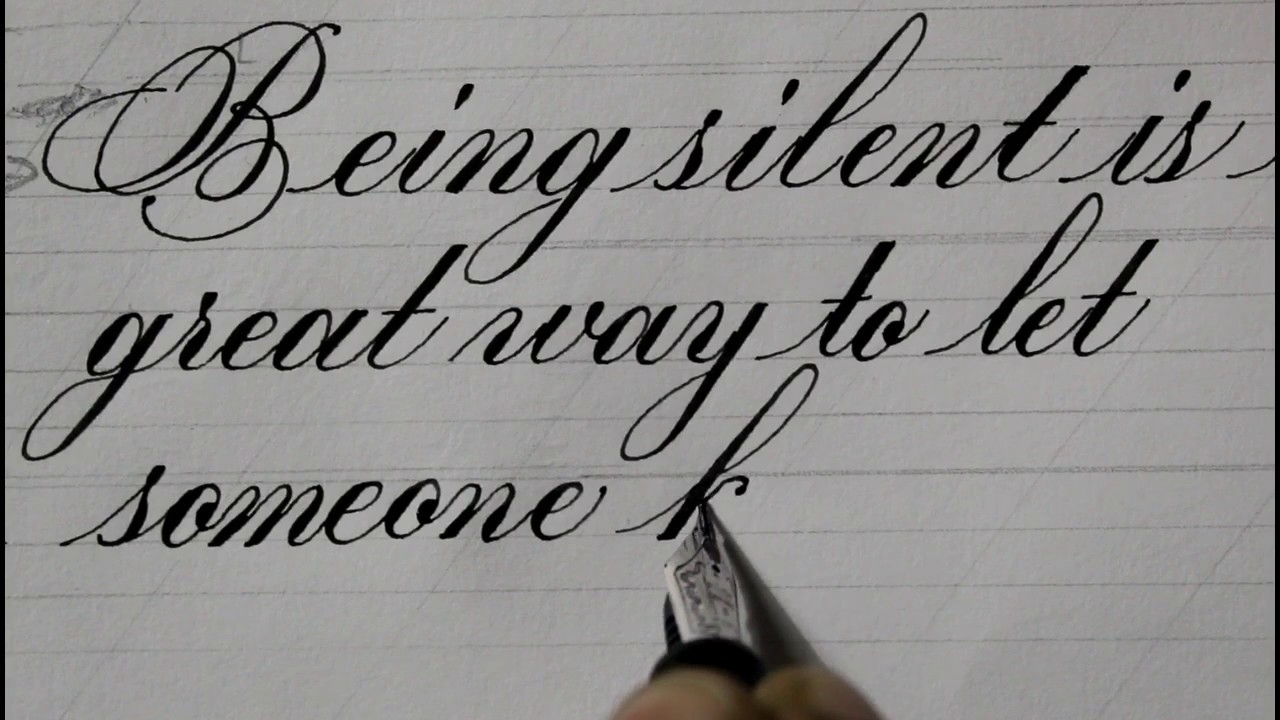 Being silent is
great way to let
someone k